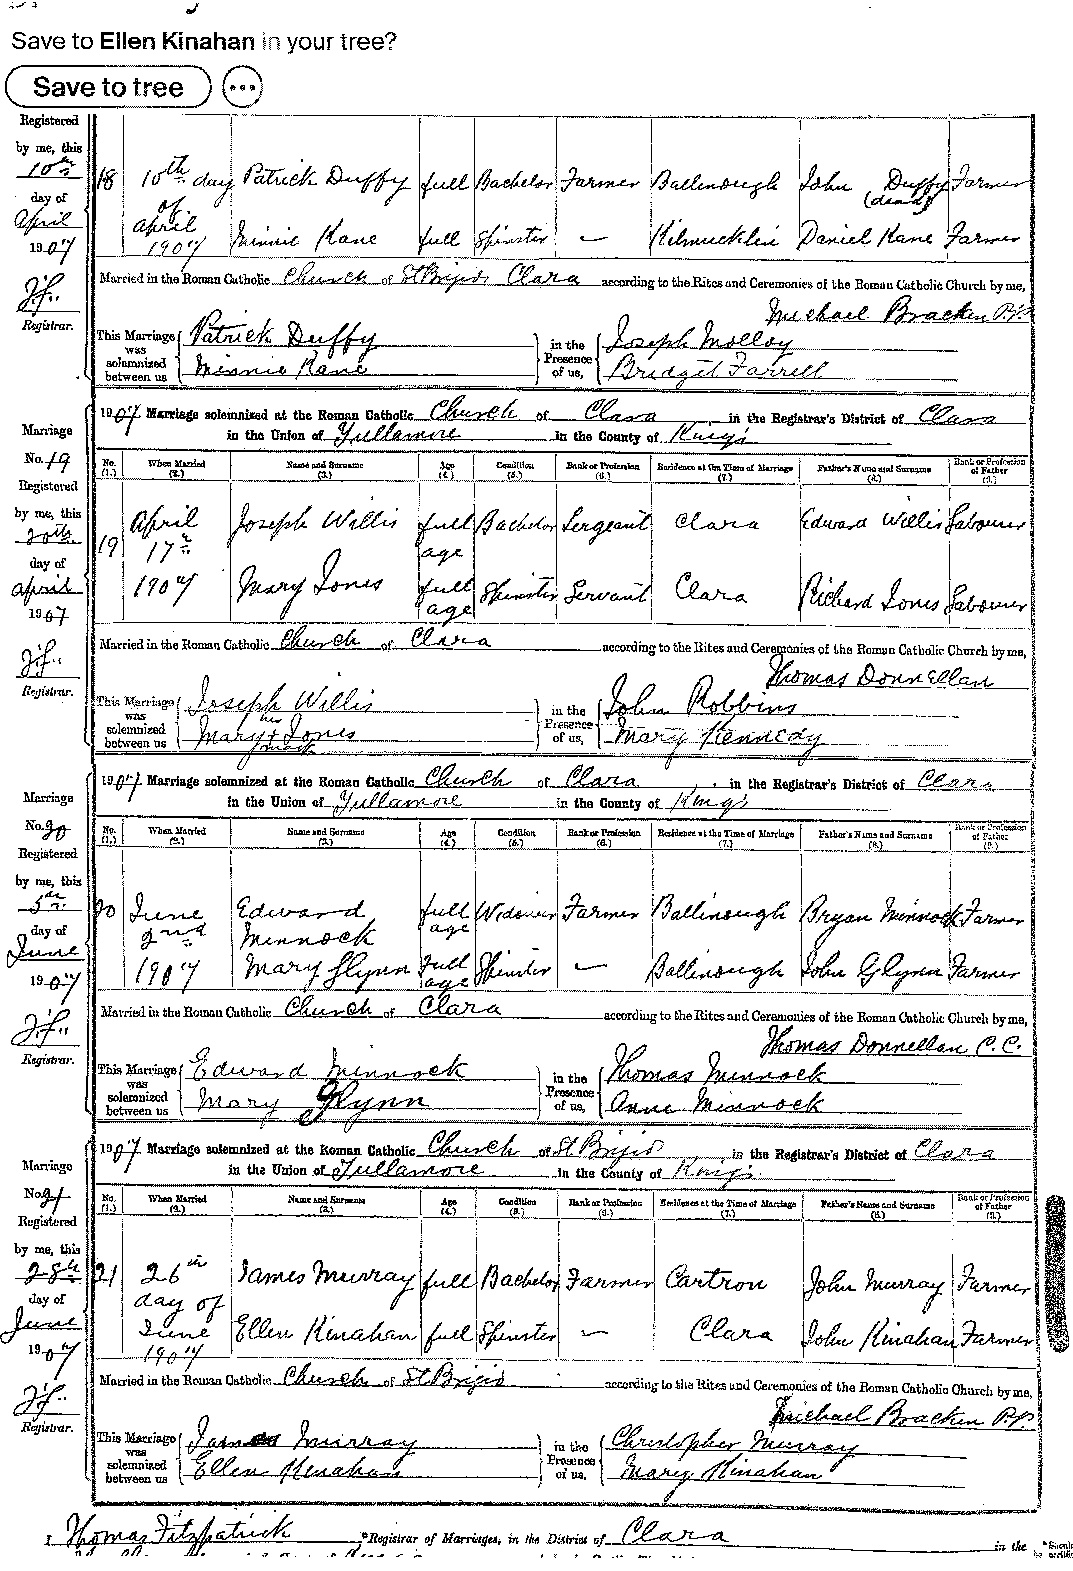 Save to Ellen Kinahan in your tree?
Save to tree
Registered
by me, this
10th
day of
April
1907
J.f.
Registrar.
18 10th day of April 1907 Patrick Duffy full Bachelor Farmer Ballinough John Duffy (dead) Farmer
Minnie Kane full Spinster — Kilmucklin Daniel Kane Farmer
Married in the Roman Catholic Church of St Brigids Clara according to the Rites and Ceremonies of the Roman Catholic Church by me,
Michael Bracken P.P.
This Marriage was solemnized between us Patrick Duffy in the Presence of us, Joseph Molloy
Minnie Kane Bridget Farrell
1907 Marriage solemnized at the Roman Catholic Church of Clara in the Registrar's District of Clara
in the Union of Tullamore in the County of King's
Marriage
No. 19
Registered
by me, this
20th
day of
April
1907
J.f.
Registrar.
No. (1.) When Married (2.) Name and Surname (3.) Age (4.) Condition (5.) Rank or Profession (6.) Residence at the Time of Marriage (7.) Father's Name and Surname (8.) Rank or Profession of Father (9.)
19 April 17th 1907 Joseph Willis full age Bachelor Sergeant Clara Edward Willis Labourer
Mary Jones full age Spinster Servant Clara Richard Jones Labourer
Married in the Roman Catholic Church of Clara according to the Rites and Ceremonies of the Roman Catholic Church by me,
Thomas Donnellan
This Marriage was solemnized between us Joseph Willis in the Presence of us, John Robbins
Mary x Jones her mark Mary Kennedy
1907 Marriage solemnized at the Roman Catholic Church of Clara in the Registrar's District of Clara
in the Union of Tullamore in the County of King's
Marriage
No. 20
Registered
by me, this
5th
day of
June
1907
J.f.
Registrar.
No. (1.) When Married (2.) Name and Surname (3.) Age (4.) Condition (5.) Rank or Profession (6.) Residence at the Time of Marriage (7.) Father's Name and Surname (8.) Rank or Profession of Father (9.)
20 June 2nd 1907 Edward Minnock full age Widower Farmer Ballinough Bryan Minnock Farmer
Mary Glynn Full age Spinster — Ballinough John Glynn Farmer
Married in the Roman Catholic Church of Clara according to the Rites and Ceremonies of the Roman Catholic Church by me,
Thomas Donnellan C.C.
This Marriage was solemnized between us Edward Minnock in the Presence of us, Thomas Minnock
Mary Glynn Anne Minnock
1907 Marriage solemnized at the Roman Catholic Church of St Brigid in the Registrar's District of Clara
in the Union of Tullamore in the County of King's
Marriage
No. 21
Registered
by me, this
28th
day of
June
1907
J.f.
Registrar.
No. (1.) When Married (2.) Name and Surname (3.) Age (4.) Condition (5.) Rank or Profession (6.) Residence at the Time of Marriage (7.) Father's Name and Surname (8.) Rank or Profession of Father (9.)
21 26th day of June 1907 James Murray full Bachelor Farmer Cartron John Murray Farmer
Ellen Kinahan full Spinster — Clara John Kinahan Farmer
Married in the Roman Catholic Church of St Brigid according to the Rites and Ceremonies of the Roman Catholic Church by me,
Michael Bracken P.P.
This Marriage was solemnized between us James Murray in the Presence of us, Christopher Murray
Ellen Kinahan Mary Kinahan
Thomas Fitzpatrick *Registrar of Marriages, in the District of Clara in the